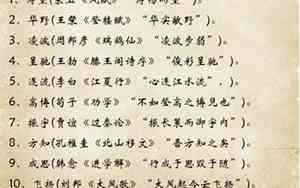 2. 华野(王粲《登楼赋》“华实敝野”)。
3. 凌波(周邦彦《瑞鹤仙》“凌波步弱”)。
4. 星驰(王勃《滕王阁诗序》“俊彩星驰”)。
5. 连流(李白《江夏行》
6. 高博(荀子《劝学》“不如登高之博见也”)。
7. 振宇(贾谊《过秦论》“振长策而御宇内”)。
8. 方知(孔稚圭《北山移文》
9. 成思(韩愈《进学解》“行成于思毁于随”)。
10. 飞扬(刘邦《大风歌》“大风起兮云飞扬”)。